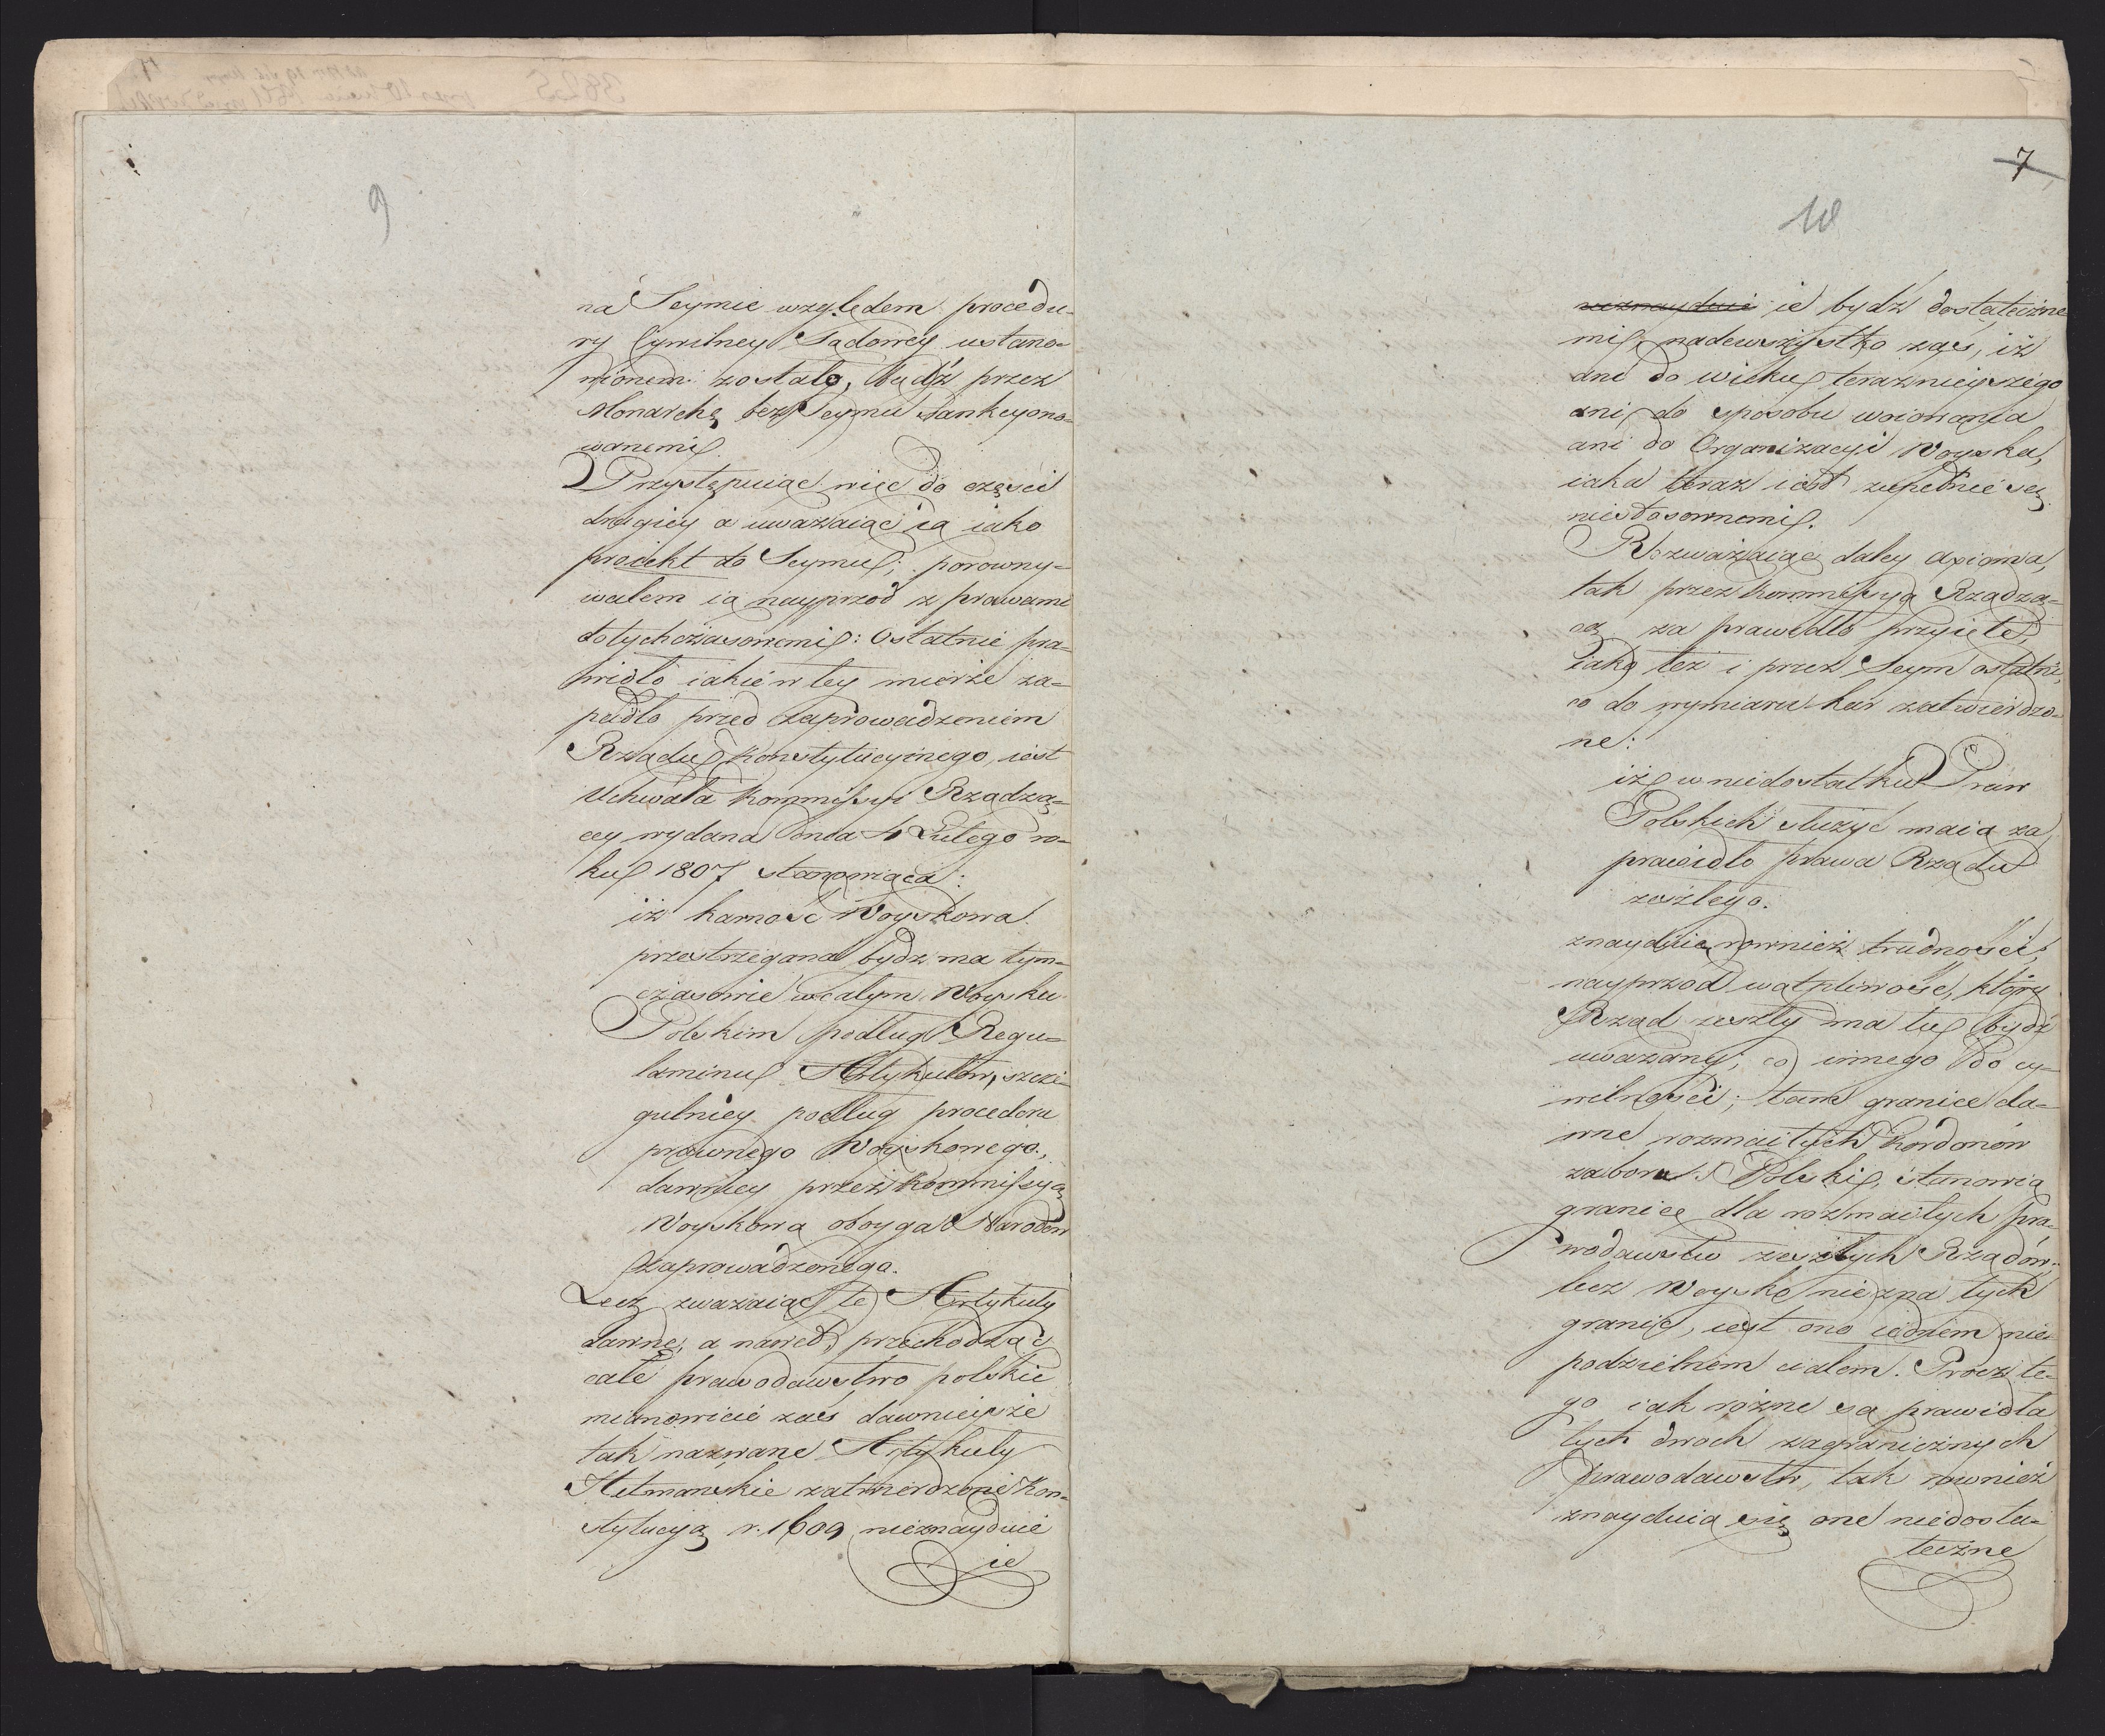 9
na Seymie względem procedu=
ry Cywilney Sądowey ustano=
wionem zostało, bądź przez
Monarchę bez Seymu sankcyono=
wanemi.
Przystępuiąc więc do części
drugiey a uważaiąc ią iako
proiekt do Seymu; porowny=
wałem ią nayprzod z prawami
dotychczasowemi: Ostatnie pra=
widło iakie w tey mierze za=
padło przed zaprowadzeniem
Rządu Konstytucyinego, iest
Uchwała Kommissyi Rządzą=
cey wydana dnia 4 Lutego ro=
ku 1807 stanowiąca:
iż karność Woyskowa
przestrzegana bydz ma tym=
czasowie w całym Woysku
Polskim podług Regu=
laminu Artykułów, szcze=
gulniey podług procederu
prawnego Woyskowego,
dawniey przez Kommissyą
Woyskową oboyga Narodow
zaprowadzonego.
Lecz zważaiąc te Artykuły
dawne, a nawet przechodząc
całe prawodawstwo polskie
mianowicie zaś dawnieysze
tak nazwane Artykuły
Hetmanskie zatwierdzone Kon=
stytucyą r. 1609 nieznayduię
ie
7
10
nieznayduię ie bydz dostateczne
mi, nadewszystko zaś, iż
ani do wieku teraznieyszego
ani do sposobu woiowania
ani do Organizacyi Woyska,
iaka teraz iest zupełnie są
niestosownemi.
Rozważaiąc daley axioma,
tak przez Kommissyą Rządzą=
cą za prawidło przyięte,
iako też i przez Seym ostatni,
co do wymiaru kar zatwierdzo=
ne:
iż w niedostatku Praw
Polskich służyć maią za
prawidło prawa Rządu
zeszłego.
znayduię rownież trudności,
nayprzod wątpliwość, który
Rząd zeszły ma tu bydź
uważany; co innego do cy=
wilności; tam granice da=
wne rozmaitych Kordonów
zaboru Polski, stanowią
granicę dla rozmaitych pra=
wodawstw zeszłych Rządów,
lecz Woysko nie zna tych
granic, iest ono iednem nie
podzielnem ciałem. Procz te=
go iak rożne są prawidła
tych dwoch zagranicznych
prawodawstw, tak rownież
znayduią się one niedosta=
teczne